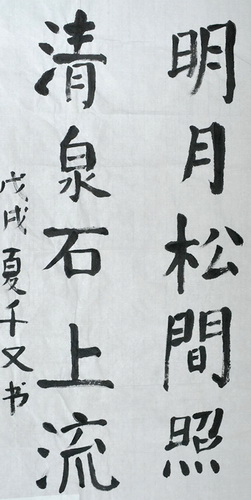 明月松間照
清泉石上流
戊戌夏千又书